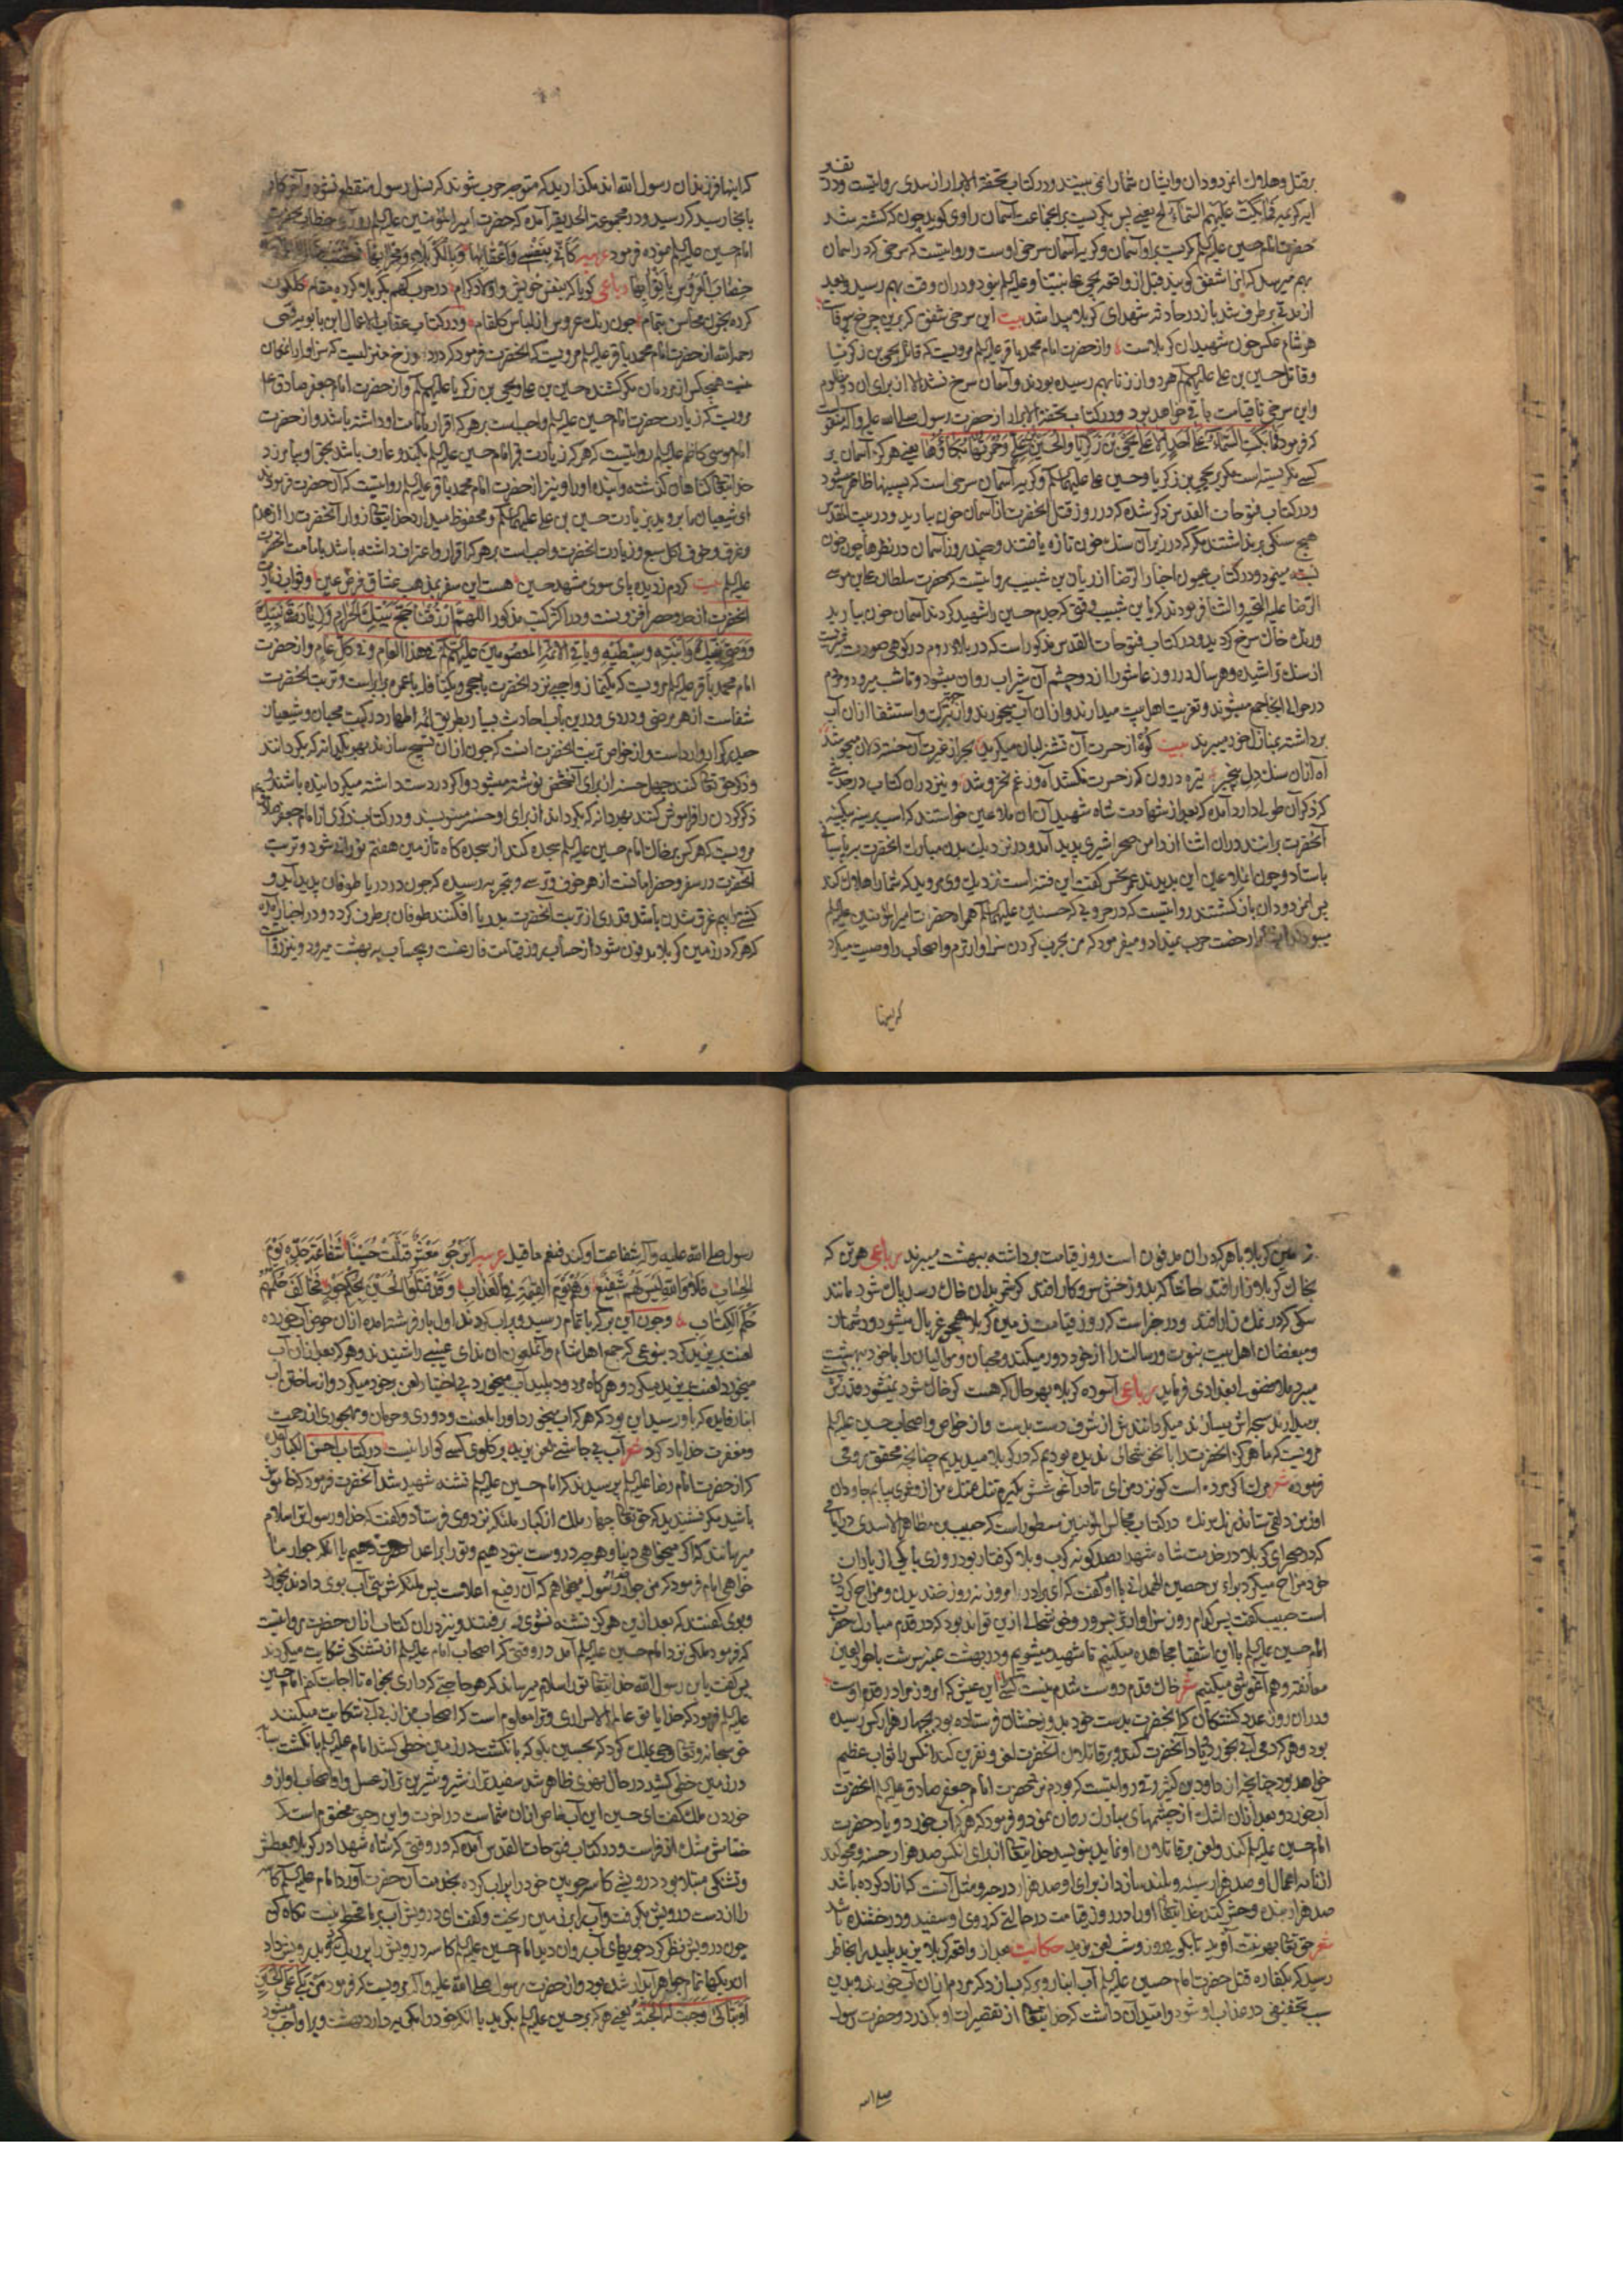 بقتل و هلاک این دودان و ایشان شما را نمی بینند و در کتاب تحفة الابرار از سدی روایتست در
آیه کریمه فما بکت علیهم السماء الخ یعنی پس نگریست بر اجماعت آسمان راوی گوید چون که کشته شد
حضرت امام حسین علیه السلم گریست براو آسمان و گریه آسمان سرخی اوست و روایتست که سرخی که در آسمان
بهم میرسد که انرا شفق گویند قبل از واقعه یحیی علی نبینا و علیه السلم نبود و دران وقت بهم رسید و بعد
از مدتی برطرف شد باز در حادثه شهدای کربلا پیدا شد بیت این سرخی شفق که برین چرخ بیوفاست
هر شام عکس خون شهیدان کربلاست و از حضرت امام محمد باقر علیه السلم مرویست که قاتل یحیی بن زکریا
و قاتل حسین بن علی علیهم السلم هر دو از زنا بهم رسیده بودند و آسمان سرخ نشد الا از برای ان دو مظلوم
و این سرخی تا قیامت باقی خواهد بود و در کتاب تحفة الابرار از حضرت رسول صلی الله علیه و آله
که فرمود ما بکت السماء علی احد الا علی یحیی بن زکریا و الحسین بن علی و حمرتها بکاؤها یعنی هرگز آسمان بر
کسی نگریسته است مگر بر یحیی بن زکریا و حسین علی علیهما السلم و گریه آسمان سرخی است که پسینها ظاهر میشود
و در کتاب فتوحات القدس ذکر شده که در روز قتل انحضرت از آسمان خون بارید و در بیت المقدس
هیچ سنگی برنداشتند مگر که در زیر آن سنک خون تازه یافتند و چند روز آسمان در نظرها چون خون
بسته مینمود و در کتاب عیون اخبار الرضا از ریان بن شبیب روایتست که حضرت سلطان علی بن موسی
الرضا علیه التحیة و الثنا فرمودند که یا بن شبیب وقتی که جدم حسین را شهید کردند آسمان خون بارید
و ریک خاک سرخ گردید و در کتاب فتوحات القدس مذکور است که در بلاد روم در کوهی صورت
از سنک تراشیده و هر سال در روز عاشورا از دو چشم آن شیر آب روان میشود و تا شب میرود و مردم
در حوالی انجا جمع میشوند و تعزیت اهل بیت میدارند و از ان آب میخورند و تبرک و استشفا از ان آب
برداشته بمنازل خود میبرند بیت کوه از حسرت آن تشنه لبان میگرید بحر از غیرت آن خسته دلان میجوشد
آه ازان سنک دل بیخبر تیره درون که ز حسرت نکشد آه و ز غم نخروشد و نیز دران کتاب در حدیثی
که ذکر آن طولی دارد آمده که بعد از شهادت شاه شهیدان ان ملاعین خواستند که اسب بر سینه بیکینه
آنحضرت رانند دران اثنا از دامن صحرا شیری پدید آمد و در نزدیک بدن مبارک انحضرت
باستاد و چون ان ملاعین این بدیدند عمر نحس گفت این فتنه است نزدیک وی مروید که شما را هلاک کند
پس ازین دودان بازگشتند روایتست که در حروبی که حسنین علیهما السلم همراه حضرت امیر المؤمنین علیه السلم
میبودند رخصت حرب نمیداد و میفرمود که من بحرب کردن سزاوارترم و اصحاب را وصیت میکرد
که اینها
که اینها فرزندان رسول الله اند مگذارید که متوجه حرب شوند که نسل رسول منقطع نشود و آخر کار
بانجا رسید که رسید و در مجموعه الحدیقه آمده که حضرت امیر المؤمنین علیه السلم روزی خطاب بحضرت
امام حسین علیه السلم نموده فرمود عربیه کانی بنفسی و اعقابها و بالکربلاء و محرابها فتخضب
خضاب العروس باثوابها رباعی گویا که بنفس خویش و اولاد گرام در حرب گهم بکربلا کرده مقام گلگون
کرده بخون محاسن بتمام چون رنک عروس از لباس گلفام و در کتاب عقاب الاعمال ابن بابویه قمی
رحمه الله از حضرت امام محمد باقر علیه السلم مرویست که انحضرت فرمود که در دوزخ منزلیست که سزاوار ان
نیست هیچکس از مردمان مگر کشنده حسین بن علی و یحیی بن زکریا علیهم السلم و از حضرت امام جعفر صادق ع
مرویست که زیارت حضرت امام حسین علیه السلم واجب است بر هر که اقرار بامامت او داشته باشد و از حضرت
امام موسی کاظم علیه السلم روایتست که هر که زیارت قبر امام حسین علیه السلم بکند و عارف باشد بحق او بیامرزد
خدایتعالی گناهان گذشته و آینده او را و نیز از حضرت امام محمد باقر علیه السلم روایتست که آن حضرت فرمود که
ای شیعیان ما بروید بزیارت حسین بن علی علیهما السلم و محفوظ میدارد خدایتعالی زوار آنحضرت را از هدم
و غرق و حرق و اکل سبع و زیارت انحضرت واجب است بر هر که اقرار و اعتراف داشته باشد بامامت انحضرت
علیه السلم بیت کردم ز دیده پای سوی مشهد حسین هست این سفر بمذهب عشاق فرض عین و ثواب زیارت
انحضرت از حد و حصر افزونست و در اکثر کتب مذکور اللهم ارزقنا حج بیتک الحرام و زیارة قبر نبیک
و وصی نبیک و ابنته و سبطیه و باقی الائمة المعصومین علیهم السلم فی هذا العام و فی کل عام و از حضرت
امام محمد باقر علیه السلم مرویست که یکنماز واجبی نزد انحضرت با حجی و یکنافله با عمره برابر است و تربت انحضرت
شفاست از هر مرضی و دردی و درین باب احادیث بسیار بطریق ائمه اطهار در کتب محبان و شیعیان
حیدر کرار وارد است و از خواص تربت انحضرت انست که چون از ان تسبیح سازند بهر یکدانه که بگردانند
و ذکر حق تعالی کنند چهل حسنه از برای آنشخص نوشته میشود و اگر در دست داشته میگردانیده باشند و
ذکر کردن را فراموش کنند بهر دانه که بگرداند از برای او حسنه بنویسند و در کتاب از امام جعفر صادق
مرویست که هر که بر خاک امام حسین علیه السلم سجده کند از سجده گاه تا زمین هفتم نورانی شود و تربت
آنحضرت در سفر و حضر امانست از هر خوف و ترسی و بتجربه رسیده که چون در دریا طوفان پدید آید و
کشتی را بیم غرق شدن باشد قدری از تربت آنحضرت بدریا افکنند طوفان برطرف گردد و در اخبار آمده
که هر که در زمین کربلا مدفون شود از حساب روز قیامت فارغست و بیحساب به بهشت میرود و نیز
زمین کربلا با هر که دران مدفون است روز قیامت برداشته ببهشت میبرند رباعی هر تن که
بخاک کربلا زار افتد حاشا که بدوزخش سر و کار افتد گر خر بدان خاک رسد پاک شود مانند
سگی که در نمک زار افتد و در خبر است که روز قیامت زمین کربلا همچو غربال میشود و دشمنان
و مبغضان اهل بیت نبوت و رسالت را از خود دور میکند و محبان و موالیان را با خود ببهشت
میبرد ملا فضولی بغدادی فرماید رباعی آسوده کربلا بهر حال که هست گر خاک شود نمیشود قدرش پست
برمیدارند سبحه اش میسازند میگردانندش از شرف دست بدست و از خواص و اصحاب حسین علیه السلم
مرویست که ما هرگز انحضرت را بانخوشحالی ندیده بودیم که در کربلا میدیدیم چنانچه محقق رومی
فرموده شعر مرک اگر مرد است گو نزد من آی تا در آغوشش بگیرم تنک تنک من ازو عمری بیابم جاودان
او ز من دلقی ستاند رنک رنک در کتاب مجالس المؤمنین مسطور است که حبیب بن مظاهر الاسدی در ایامی
که در صحرای کربلا در خدمت شاه شهدا بصد گونه کرب و بلا گرفتار بود روزی با یکی از یاران
خود مزاح میکرد براء بن حصین الهمدانی با او گفت که ای برادر امروز نه روز خندیدن و مزاح کردن
است حبیب گفت پس کدام روز سزاوارتر بسرور و خوشحالی ازین تواند بود که در قدم مبارک حضرت
امام حسین علیه السلم با این اشقیا مجاهده میکنیم تا شهید میشویم و در بهشت عنبر سرشت با حور العین
معانقه و هم آغوشی میکنیم شعر خاک قدم دوست شدم نیست کسی را این عیش که امروز مرا در قدم اوست
و دران روز عدد کشتگان که انحضرت بدست خود بدوزخشان فرستاده بود بچهار هزار کس رسیده
بود و هر که دمی آبی بخورد و یاد آنحضرت کند و بر قاتلان آنحضرت لعن و نفرین کند انکس را ثواب عظیم
خواهد بود چنانچه از داود بن کثیر رقی روایتست که بودم نزد حضرت امام جعفر صادق علیه السلم انحضرت
آب خورد و بعد ازان اشک از چشمهای مبارک روان نمود و فرمود که هر که آب خورد و یاد حضرت
امام حسین علیه السلم کند و لعن بر قاتلان او نماید بنویسد خدایتعالی از برای انکس صد هزار حسنه و محو کند
از نامه اعمال او صد هزار سیئه و بلند سازد از برای او صد هزار درجه و مثل آنست که آزاد کرده باشد
صد هزار بنده و حشر کند خدایتعالی او را در روز قیامت در حالتی که روی او سفید و درخشنده باشد
شعر حق تعالی بهر نیت آفرید تا بگوید روز و شب لعن یزید حکایت بعد از واقعه کربلا یزید پلید را بخاطر
رسید که بکفاره قتل حضرت امام حسین علیه السلم آب انبار و برکه بسازد که مردم ازان آب خورند و بدین
سبب تخفیفی در عذاب او شود و امید آن داشت که خدایتعالی از تقصیرات او بگذرد و حضرت رسول
صلی الله
رسول صلی الله علیه و آله شفاعت او کند فنعم ما قیل عربیه أترجو معشر قتلت حسینا شفاعة جده یوم
الحساب فلا و الله لیس لهم شفیع و هم یوم القیمة فی العذاب و قد قتلوا الحسین بحکم جور فخالف حکمهم
حکم الکتاب و چون این برکه باتمام رسید و پر آب کردند اول بار فرشته امده ازان حوض آب خورده
لعنت بر یزید کرد بنوعی که جمع اهل شام و آنملعون ان ندای غیبی را شنیدند و هر که بعد ازان آب
میخورد لعنت بر یزید میکرد و هر گاه مردود پلید آب میخورد بی اختیار لعن بر خود میکرد و از ساختن آب
انبار فایده که باو رسید این بود که هر که آب میخورد او را بلعنت و دوری و حرمان و مهجوری از رحمت
و مغفرت خدا یاد کرد شعر آب بی چاشنی لعن یزید بر گلوی کسی گوارا نیست در کتاب احسن الکبار آمده
که از حضرت امام رضا علیه السلم پرسیدند که امام حسین علیه السلم تشنه شهید شد آنحضرت فرمود که خاموش
باشید مگر نشنیدید که حق تعالی چهار ملک از کبار ملائکه نزد وی فرستاد و گفت که خدا و رسول تو را سلام
میرسانند که اگر میخواهی دنیا و هر چه در وست بتو دهیم و تو را بر اعدا نصرت دهیم یا انکه جوار ما
خواهی امام فرمود که من جوار خدا و رسول میخواهم که آن رفیع اعلاست پس ملائکه شربتی آب بوی دادند بخورد
و بوی گفتند که بعد ازین هرگز تشنه نشوی برفتند و نیز دران کتاب ازان حضرت روایتست
که فرمود ملکی نزد امام حسین علیه السلم آمد در وقتی که اصحاب امام علیه السلم از تشنگی شکایت میکردند
پس گفت یا بن رسول الله خدایتعالی تو را سلام میرساند که هر حاجتی که داری بخواه تا اجابت کنم امام حسین
علیه السلم فرمود که خدایا تو عالم الاسراری و ترا معلوم است که اصحاب من از بی آبی شکایت میکنند
حق سبحانه و تعالی وحی بملک کرد که بحسین بگو که بانگشت در زمین خطی کشد امام علیه السلم بانگشت سبابه
در زمین خطی کشید در حال نهری ظاهر شد سفیدتر از شیر و شیرین تر از عسل و او و اصحاب او از و
خوردن ملک گفت ای حسین این آب خاص ازان شماست در آخرت و این رحیق مختوم است که
ختامش مشک ازفر است و در کتاب فتوحات القدس آمده که در وقتی که شاه شهدا در کربلا بعطش
و تشنگی مبتلا بود درویشی کاسه چوبین خود را پر آب کرده بخدمت آن حضرت آورد امام علیه السلم کاسه
را از دست درویش بگرفت و آب را بر زمین ریخت و گفت ای درویش آب بر ما قحط نیست نگاه کن
چون درویش نظر کرد جویهای آب روان دید امام حسین علیه السلم کاسه درویش را پر ریک کرده بدرویش داد
ان ریکها تمام جواهر آبدار شده بود و از حضرت رسول صلی الله علیه و آله مرویست که فرمود من بکی علی الحسین
او تباکی وجبت له الجنة یعنی هر که بر حسین علیه السلم بگرید یا انکه خود را بگریه دارد بهشت ویرا واجب میشود